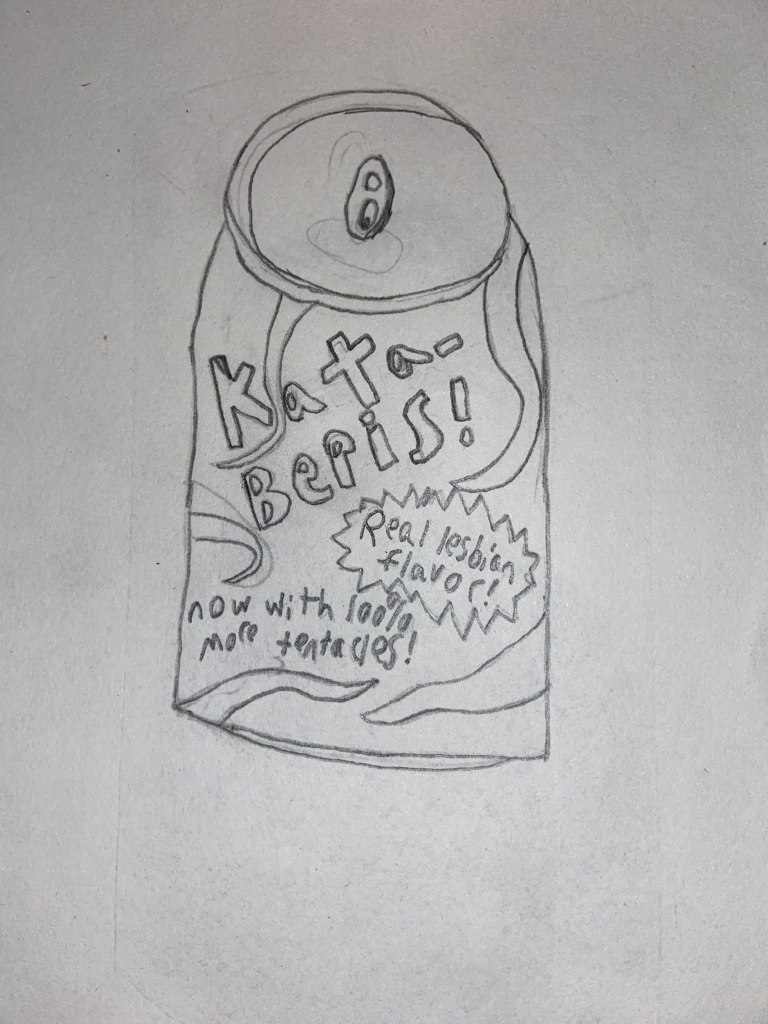 Kata-
Beris!
Real lesbian
flavor!
now with 100%
more tentacles!